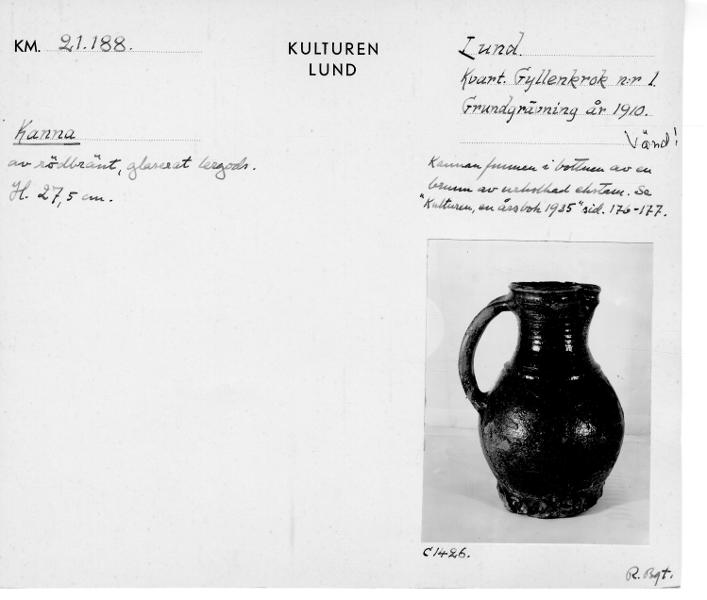 KM. 21.188.
KULTUREN
LUND
Lund.
Kvart. Gyllenkrok n:r 1.
Grundgrävning år 1910.
Vänd!
Kanna
av rödbränt, glaserat lergods.
H. 27,5 cm.
Kannan funnen i bottnen av en
brunn av urholkad ekstam. Se
"Kulturen, en årsbok 1935" sid. 176-177.
C 1426.
R. Bgt.